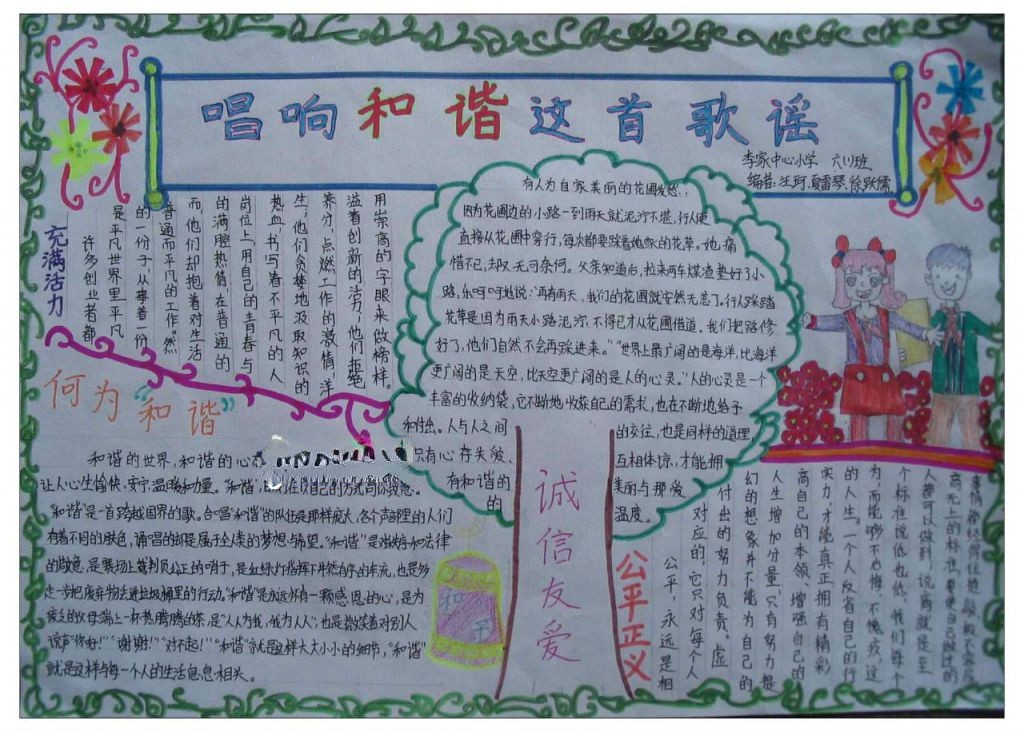 唱响和谐这首歌谣
李家中心小学 六(1)班
充满活力
许多创业者都
是平凡世界里平凡
的一份子,从事着一份
普通而平凡的工作。然
而,他们却抱着对生活
的满腔热情,在普通的
岗位上,用自己的青春与
热血,书写着不平凡的人
生;他们贪婪地汲取知识的
养分,点燃工作的激情,洋
溢着创新的活力;他们拒绝
用崇高的字眼来做榜样。
有人为自家美丽的花圃发愁.,
因为花圃边的小路一到雨天就泥泞不堪,行人便
直接从花圃中穿行,每次都要踩着她家的花草。她痛
惜不已,却又无可奈何。父亲知道后,拉来两车煤渣垫好了小
路,乐呵呵地说:“再有雨天,我们的花圃就安然无恙了。行人踩踏
花草是因为雨天小路泥泞,不得已才从花圃借道。我们把路修
好了,他们自然不会再踩进来。”“世界上最广阔的是海洋,比海洋
更广阔的是天空,比天空更广阔的是人的心灵。”人的心灵是一个
丰富的收纳袋,它不断地收获自己的需求,也在不断地给予
和付出。人与人之间的交往,也是同样的道理,
只有心存关爱、互相体谅,才能拥
有和谐的美丽与那爱
的温度。
诚信友爱
何为“和谐”
和谐的世界,和谐的心
让人心生愉快、安宁,温暖和力量。“和谐”,
“和谐”是一首跨越国界的歌。合唱“和谐”的队伍是那样庞大,各个声部里的人们
有着不同的肤色,诵唱的却是属于全人类的梦想与希望。“和谐”是对秩序和法律
的敬意,是赛场上裁判员公正的哨子,是红绿灯指挥下井然有序的车流,也是多
走一步把废弃物丢进垃圾桶里的行动。“和谐”是永远怀有一颗感恩的心,是为
疲乏的父母端上一杯热腾腾的茶,是“人人为我,我为人人”,也是微笑着对别人
说声“你好!”“谢谢!”“对不起!”“和谐”就是这样大大小小的细节,“和谐”
就是这样与每一个人的生活息息相关。
和平
公平正义
公平,永远是相
对应的,它只对每个人
付出的努力负责。虚
幻的想象并不能为自己的
人生增加分量,只有努力提
高自己的本领、增强自己的
实力,才能真正拥有精彩
的人生。一个人反省自己的行
为,而能够不后悔,不愧疚,这
个标准说低也低,我们每个
人都可以做到,说高就是至
高无上的标准,